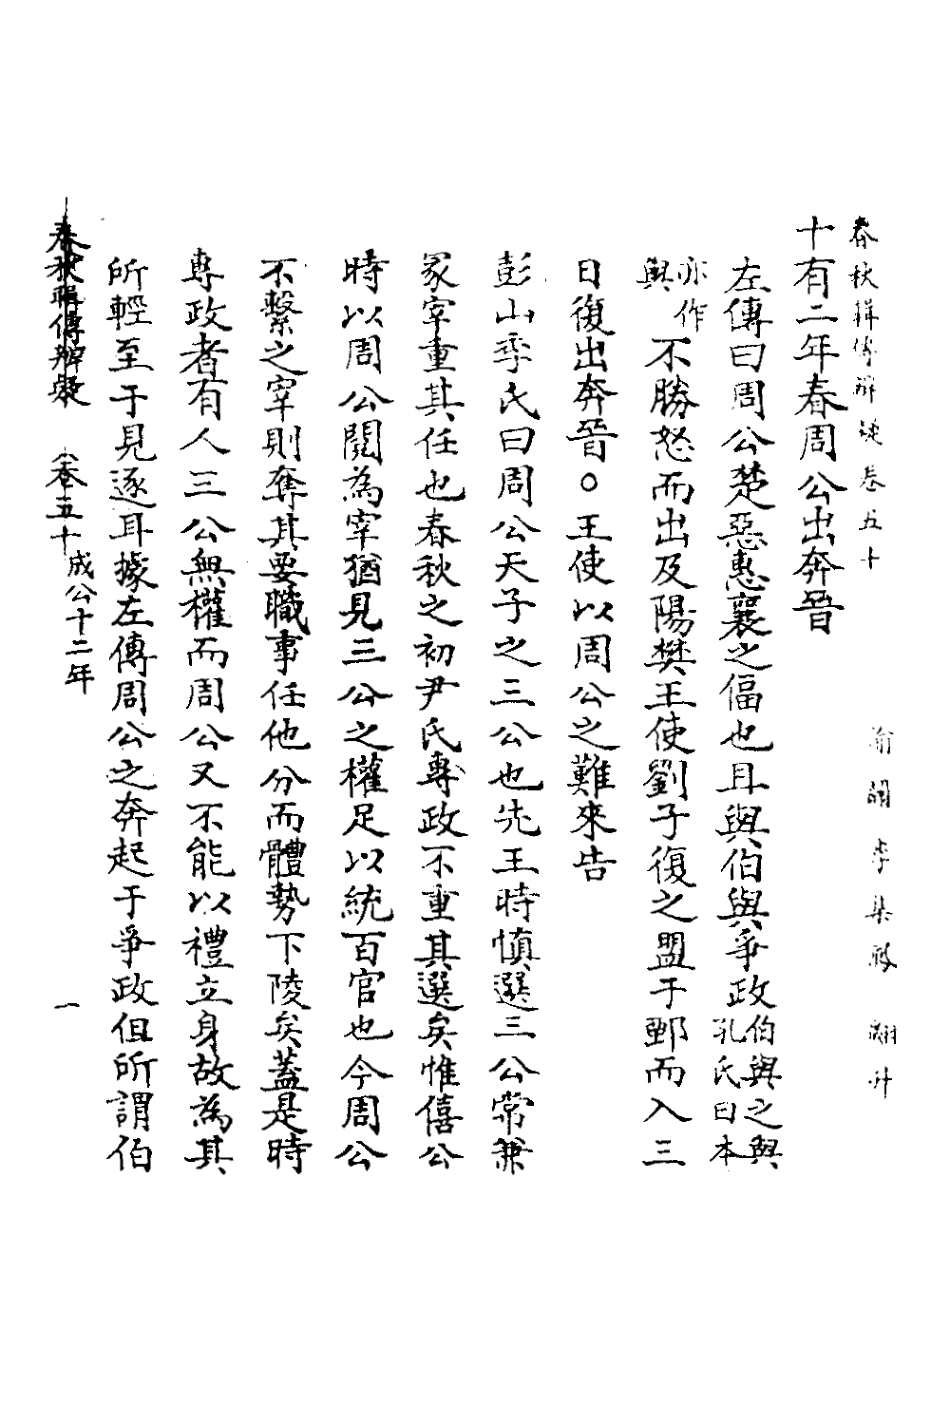 春秋輯傳辨疑卷五十
渝關李集鳳翽升
十有二年春周公出奔晉
左傳曰周公楚惡惠襄之偪也且與伯與爭政伯與之與孔氏曰本
亦作輿不勝怒而出及陽樊王使劉子復之盟于鄄而入三
日復出奔晉○王使以周公之難來告
彭山季氏曰周公天子之三公也先王時慎選三公常兼
冢宰重其任也春秋之初尹氏專政不重其選矣惟僖公
時以周公閱為宰猶見三公之權足以統百官也今周公
不繫之宰則奪其要職事任他分而體勢下陵矣蓋是時
專政者有人三公無權而周公又不能以禮立身故為其
所輕至于見逐耳據左傳周公之奔起于爭政但所謂伯
春秋輯傳辨疑 卷五十 成公十二年 一